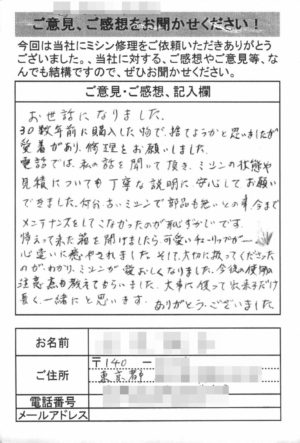 ご意見、ご感想をお聞かせください！
今回は当社にミシン修理をご依頼いただきありがとう
ございました。、当社に対する、ご感想やご意見等、な
んでも結構ですので、ぜひお聞かせください。
ご意見・ご感想、記入欄
お世話になりました。
30数年前に購入した物で、捨てようかと思いましたが
愛着があり、修理をお願いしました。
電話では、私の話を聞いて頂き、ミシンの状態や
見積についても丁寧な説明に安心してお願い
できました。何分古いミシンで部品も無いとの事、今まで
メンテナンスをしてこなかったのが恥ずかしいです。
帰って来た箱を開けましたら可愛いチューリップが
心遣いに癒やされました。そして、大切に扱ってくださった
のがわかり、ミシンが愛おしくなりました。今後の使用の
注意点も教えてもらいました。大事に使って出来るだけ
長く一緒にと思います。ありがとうございました。
お名前
ご住所
〒140 ー
東京都
電話番号
メールアドレス